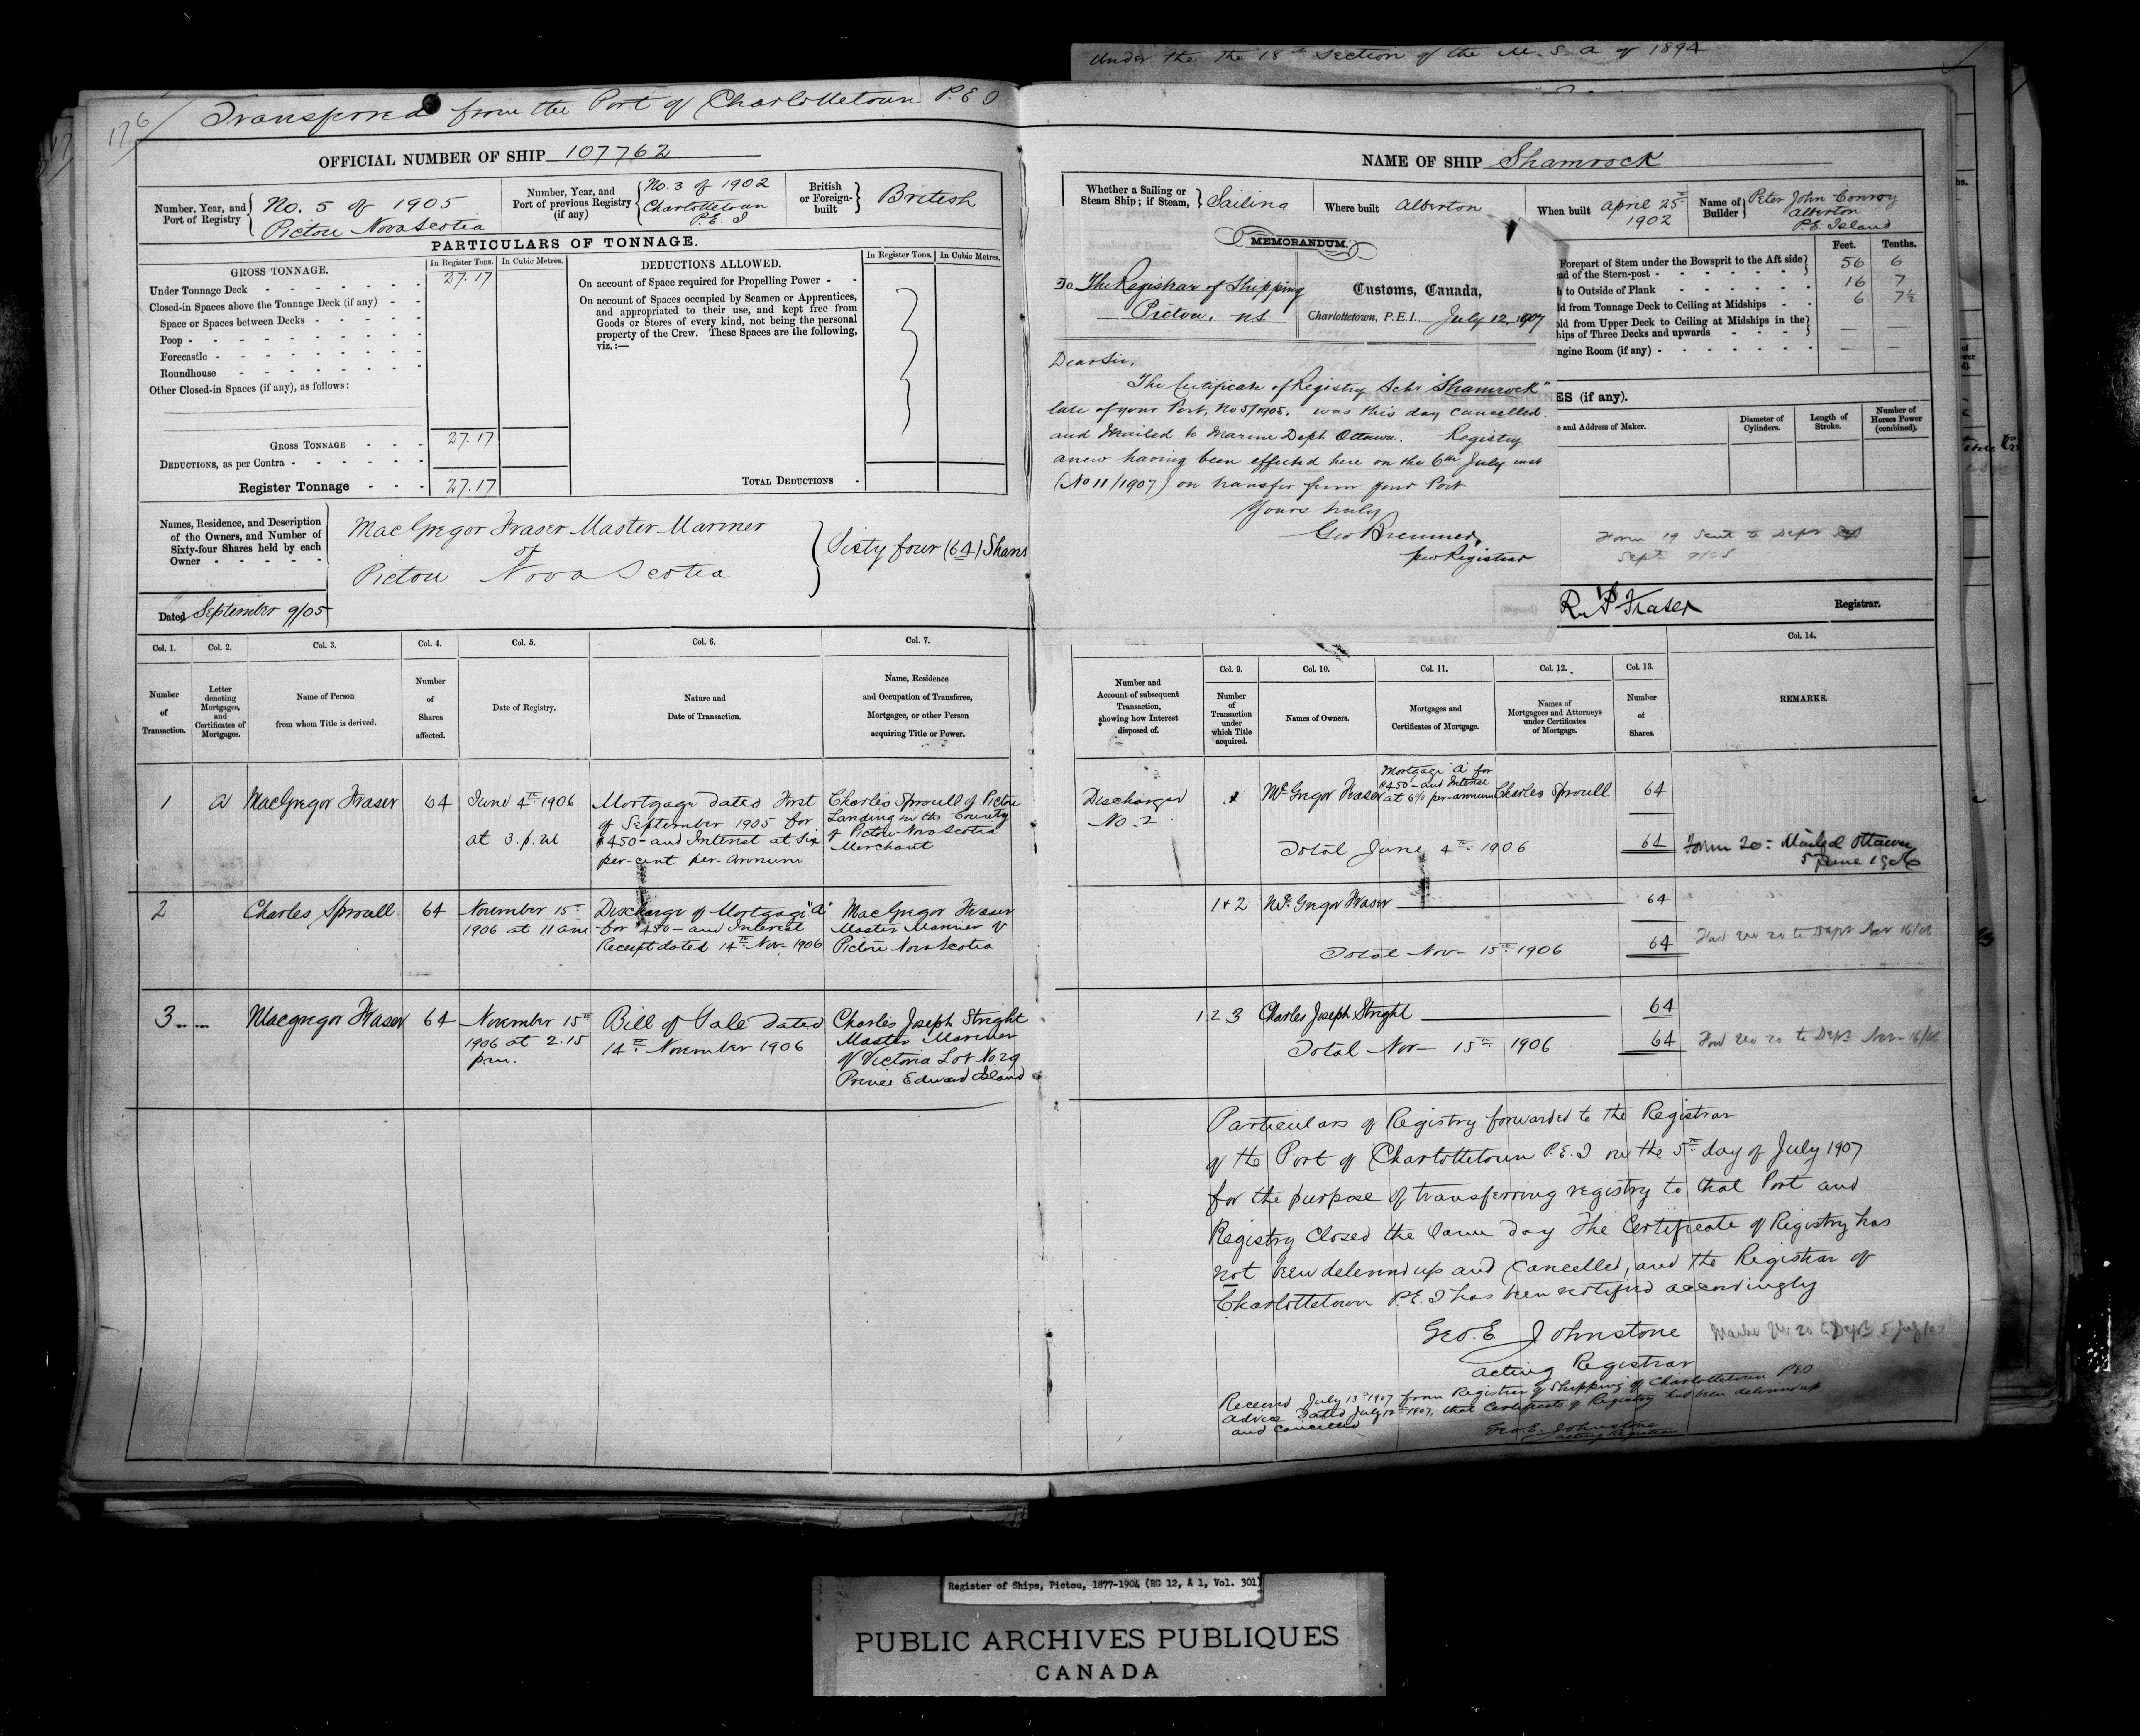 Under the the 18th Section of the M. S. A of 1894
176
Transferred from the Port of Charlottetown P.E.I
OFFICIAL NUMBER OF SHIP 107762
Number, Year, and Port of Registry
No. 5 of 1905
Pictou Nova Scotia
Number, Year, and Port of previous Registry (if any)
No. 3 of 1902
Charlottetown
P.E.I
British or Foreign-built
British
PARTICULARS OF TONNAGE.
GROSS TONNAGE.
In Register Tons.
In Cubic Metres.
Under Tonnage Deck 27.17
Closed-in Spaces above the Tonnage Deck (if any)
Space or Spaces between Decks
Poop
Forecastle
Roundhouse
Other Closed-in Spaces (if any), as follows:
GROSS TONNAGE 27.17
DEDUCTIONS, as per Contra
Register Tonnage 27.17
DEDUCTIONS ALLOWED.
In Register Tons.
In Cubic Metres.
On account of Space required for Propelling Power
On account of Spaces occupied by Seamen or Apprentices,
and appropriated to their use, and kept free from
Goods or Stores of every kind, not being the personal
property of the Crew. These Spaces are the following,
viz.:—
TOTAL DEDUCTIONS
Names, Residence, and Description
of the Owners, and Number of
Sixty-four Shares held by each
Owner
MacGregor Fraser Master Mariner
of
Pictou Nova Scotia
Sixty four (64) Shares
Dated September 9/05
NAME OF SHIP Shamrock
Whether a Sailing or Steam Ship; if Steam,
Sailing
Where built Alberton
When built April 25th
1902
Name of Builder
Peter John Conroy
Alberton
P.E. Island
Feet. Tenths.
Forepart of Stem under the Bowsprit to the Aft side
ad of the Stern-post 56 6
h to Outside of Plank 16 7
ld from Tonnage Deck to Ceiling at Midships 6 7½
old from Upper Deck to Ceiling at Midships in the
hips of Three Decks and upwards — —
ngine Room (if any) — —
ES (if any).
e and Address of Maker.
Diameter of Cylinders.
Length of Stroke.
Number of Horses Power (combined).
MEMORANDUM.
To The Registrar of Shipping
Pictou, NS
Customs, Canada,
Charlottetown, P.E.I., July 12, 1907
Dear Sir,
The Certificate of Registry Schr "Shamrock"
late of your Port, No 5/1905, was this day cancelled
and mailed to Marine Dept Ottawa. Registry
anew having been effected here on the 6th July inst
(No 11/1907) on transfer from your Port
Yours truly
Geo Bremner,
pro Registrar
Form 19 Sent to Dept
Sept 9/05
R. P. Fraser Registrar.
Col. 1.
Number of Transaction.
Col. 2.
Letter denoting Mortgages, and Certificates of Mortgages.
Col. 3.
Name of Person from whom Title is derived.
Col. 4.
Number of Shares affected.
Col. 5.
Date of Registry.
Col. 6.
Nature and Date of Transaction.
Col. 7.
Name, Residence and Occupation of Transferee, Mortgagee, or other Person acquiring Title or Power.
Number and Account of subsequent Transaction, showing how Interest disposed of.
Col. 9.
Number of Transaction under which Title acquired.
Col. 10.
Names of Owners.
Col. 11.
Mortgages and Certificates of Mortgage.
Col. 12.
Names of Mortgagees and Attorneys under Certificates of Mortgage.
Col. 13.
Number of Shares.
Col. 14.
REMARKS.
1 A MacGregor Fraser 64
June 4th 1906
at 3. p.m
Mortgage dated First
of September 1905 for
$450- and Interest at Six
per-cent per-Annum
Charles Sproull of Pictou
Landing in the County
of Pictou Nova Scotia
Merchant
Discharged
No. 2.
McGregor Fraser
Mortgage A for
$450- and Interest
at 6% per-annum
Charles Sproull 64
Total June 4th 1906 64
Form 20: Mailed Ottawa
5 June 1906
2 Charles Sproull 64
November 15th
1906 at 11 am
Discharge of Mortgage "A"
for $450- and Interest
Receipt dated 14th Nov- 1906
MacGregor Fraser
Master Mariner of
Pictou Nova Scotia
1+2 McGregor Fraser 64
Total Nov- 15th 1906 64
20 to Dept Nov 16/06
3 Macgregor Fraser 64
November 15th
1906 at 2.15
p.m.
Bill of Sale dated
14th November 1906
Charles Joseph Stright
Master Mariner
of Victoria Lot No. 29
Prince Edward Island
1 2 3 Charles Joseph Stright 64
Total Nov- 15th 1906 64
20 to Dept Nov- 16/06
Particulars of Registry forwarded to the Registrar
of the Port of Charlottetown P.E.I on the 5th day of July 1907
for the purpose of transferring registry to that Port and
Registry Closed the Same day The Certificate of Registry has
not been delivered up and Cancelled, and the Registrar of
Charlottetown P.E.I has been notified accordingly
Geo. E Johnstone
acting Registrar
20 to Dept 5 July/07
Received July 13th 1907 from Registrar of Shipping of Charlottetown P.E.I
advice Dated July 12th 1907, that Certificate of Registry had been delivered up
and Cancelled
Geo. E. Johnstone
acting Registrar
Register of Ships, Pictou, 1877-1904 (RG 12, A 1, Vol. 301)
PUBLIC ARCHIVES PUBLIQUES
CANADA